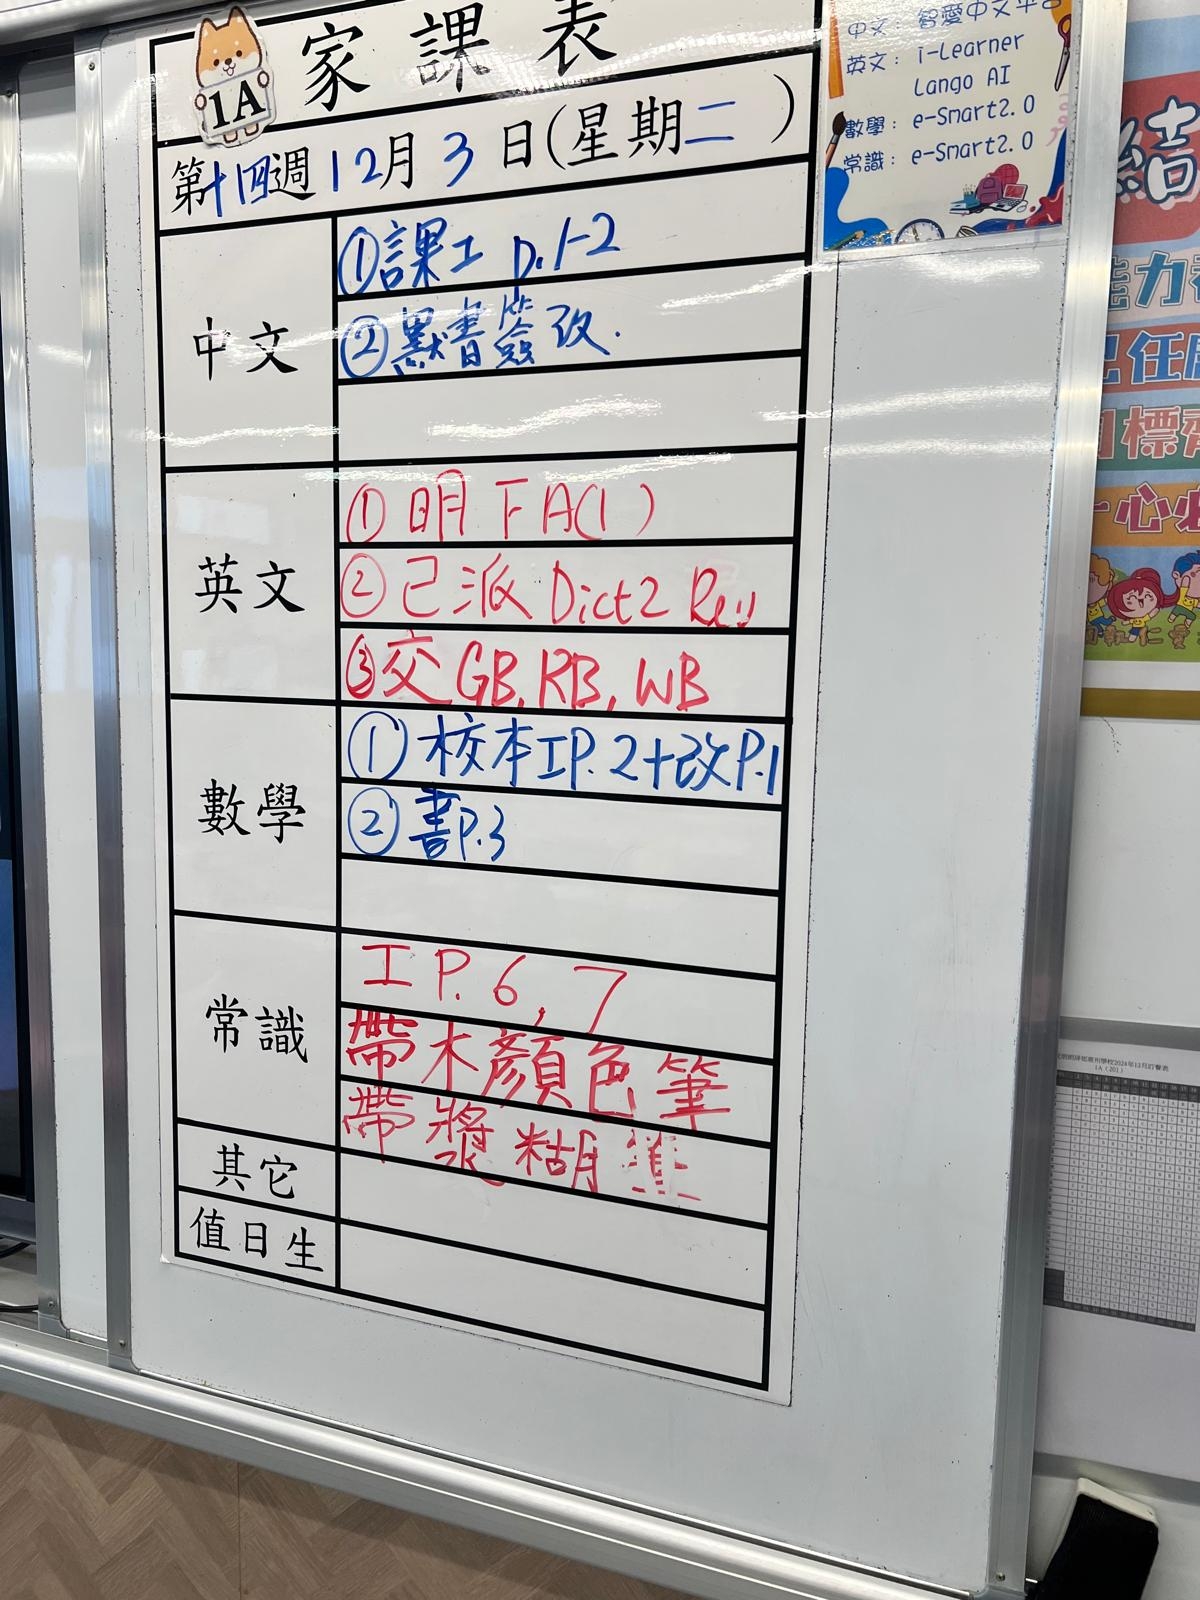 家課表
1A
第十四週12月3日(星期二)
中文
①課工 p.1-2
②默書簽改.
英文
①明 F A(1)
②已派 Dict2 Rev
③交 GB, RB, WB
數學
①校本工P.2+改P.1
②書P.3
常識
工 P. 6, 7
帶木顏色筆
帶漿糊筆
其它
值日生
中文: 智愛中文平台
英文: i-Learner
Lango AI
數學: e-Smart2.0
常識: e-Smart2.0
結
能力
己任
目標
心必
仁愛
1A (201)